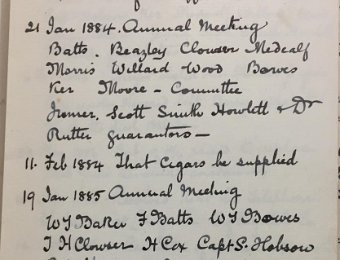 21 Jan 1884. Annual Meeting
Batts. Beazley Clowser Medcalf
Morris Willard Wood Bowes
Ker Moore — Committee
Scott Smith Howlett & Dr
Rutter guarantors —
11. Feb 1884 That Cigars be supplied
19 Jan 1885 Annual Meeting
W J Baker F Batts W J Bowes
J H Clowser H Cox Capt S. Hobson